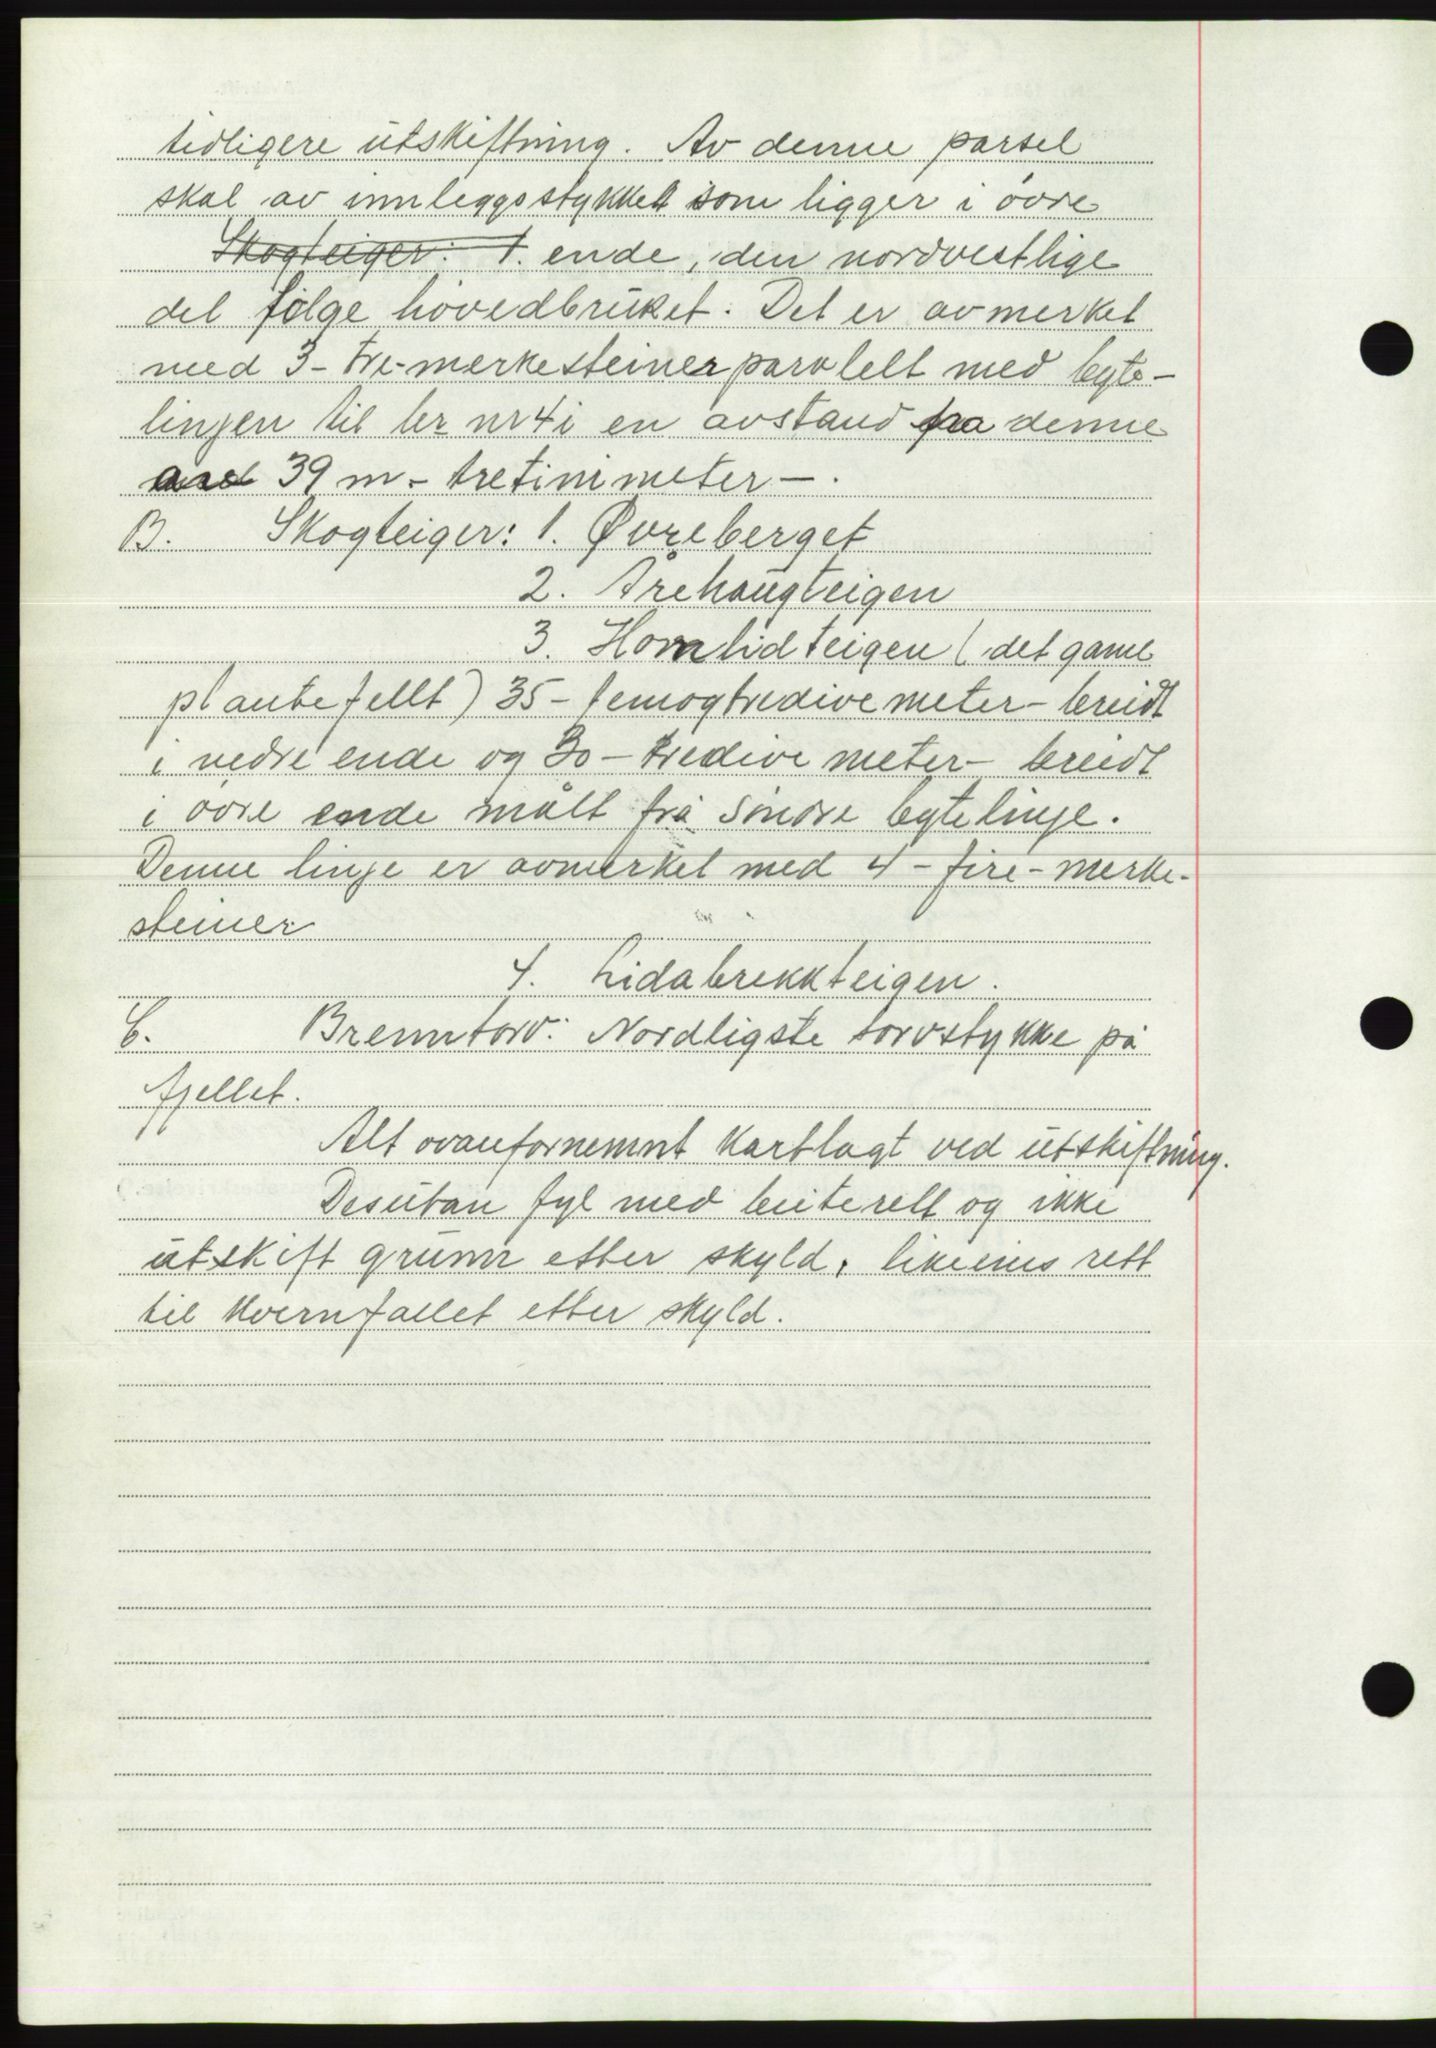 tidligere utskiftning. Av denne parsel
skal av innleggsstykket som ligger i øvre
Skogteiger: 1. ende, den nordvestlige
del følge hovedbruket. Det er avmerket
med 3 - tre-merkesteiner paralelt med byte-
linjen til br nr 4 i en avstand fra denne
39 m - tretini meter - .
B. Skogteiger: 1. Øvreberget
2. Årehaugteigen
3. Homlidteigen (det gamle
plantefellt) 35 - femogtredive meter - breidt
i nedre ende og 30 - tredive meter - breidt
i øvre ende målt frå søndre bytelinje.
Denne linje er avmerket med 4 - fire - merke-
steiner
4. Lidabrekkteigen.
C. Brenntorv: Nordligste torvstykke på
fjellet.
Alt ovanfornemnt kartlagt ved utskiftning.
Desutan fyl med beiterett og ikke
utskift grunn etter skyld, likeeins rett
til kvernfallet etter skyld.